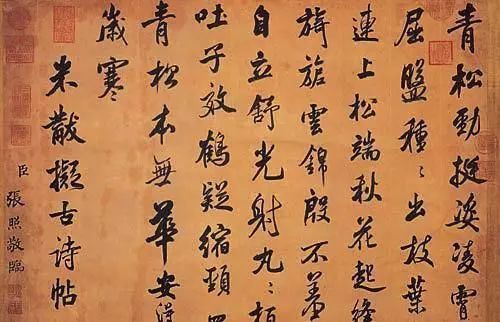 青松勁挺姿凌霄
屈盤種〻出枝葉
連上松端秋花起絳
旖旎雲錦殷不羞
自立舒光射丸〻柏
吐子效鶴疑縮頸
青松本無華安得
歲寒
米黻擬古詩帖
臣張照敬臨